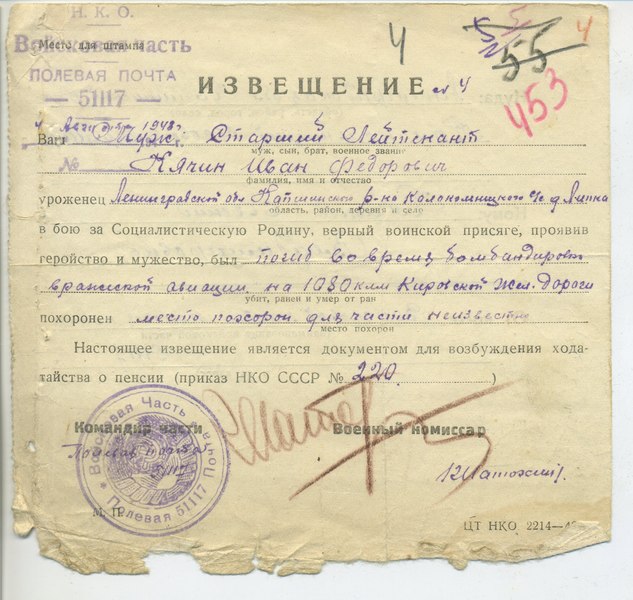 Н. К. О.
Место для штампа
Войсковая часть
ПОЛЕВАЯ ПОЧТА
— 51117 —
4
55
4
453
ИЗВЕЩЕНИЕ № 4
4 1943 г.
Ваш Муж Старший Лейтенант
муж, сын, брат, военное звание
№ Качин Иван Федорович
фамилия, имя и отчество
уроженец Ленинградской обл Капшинского р-на д Липка
область, район, деревня и село
в бою за Социалистическую Родину, верный воинской присяге, проявив
геройство и мужество, был погиб во время бомбандировки
вражеской авиации на 1080 клм Кировской Жел. Дороги
убит, ранен и умер от ран
похоронен место похорон для части неизвестно
место похорон
Настоящее извещение является документом для возбуждения хода-
тайства о пенсии (приказ НКО СССР № 220 )
Командир части Военный комиссар
Полевая почта
51117
Войсковая Часть Полевая Почта 51117
М. П.
ЦТ НКО 2214—4